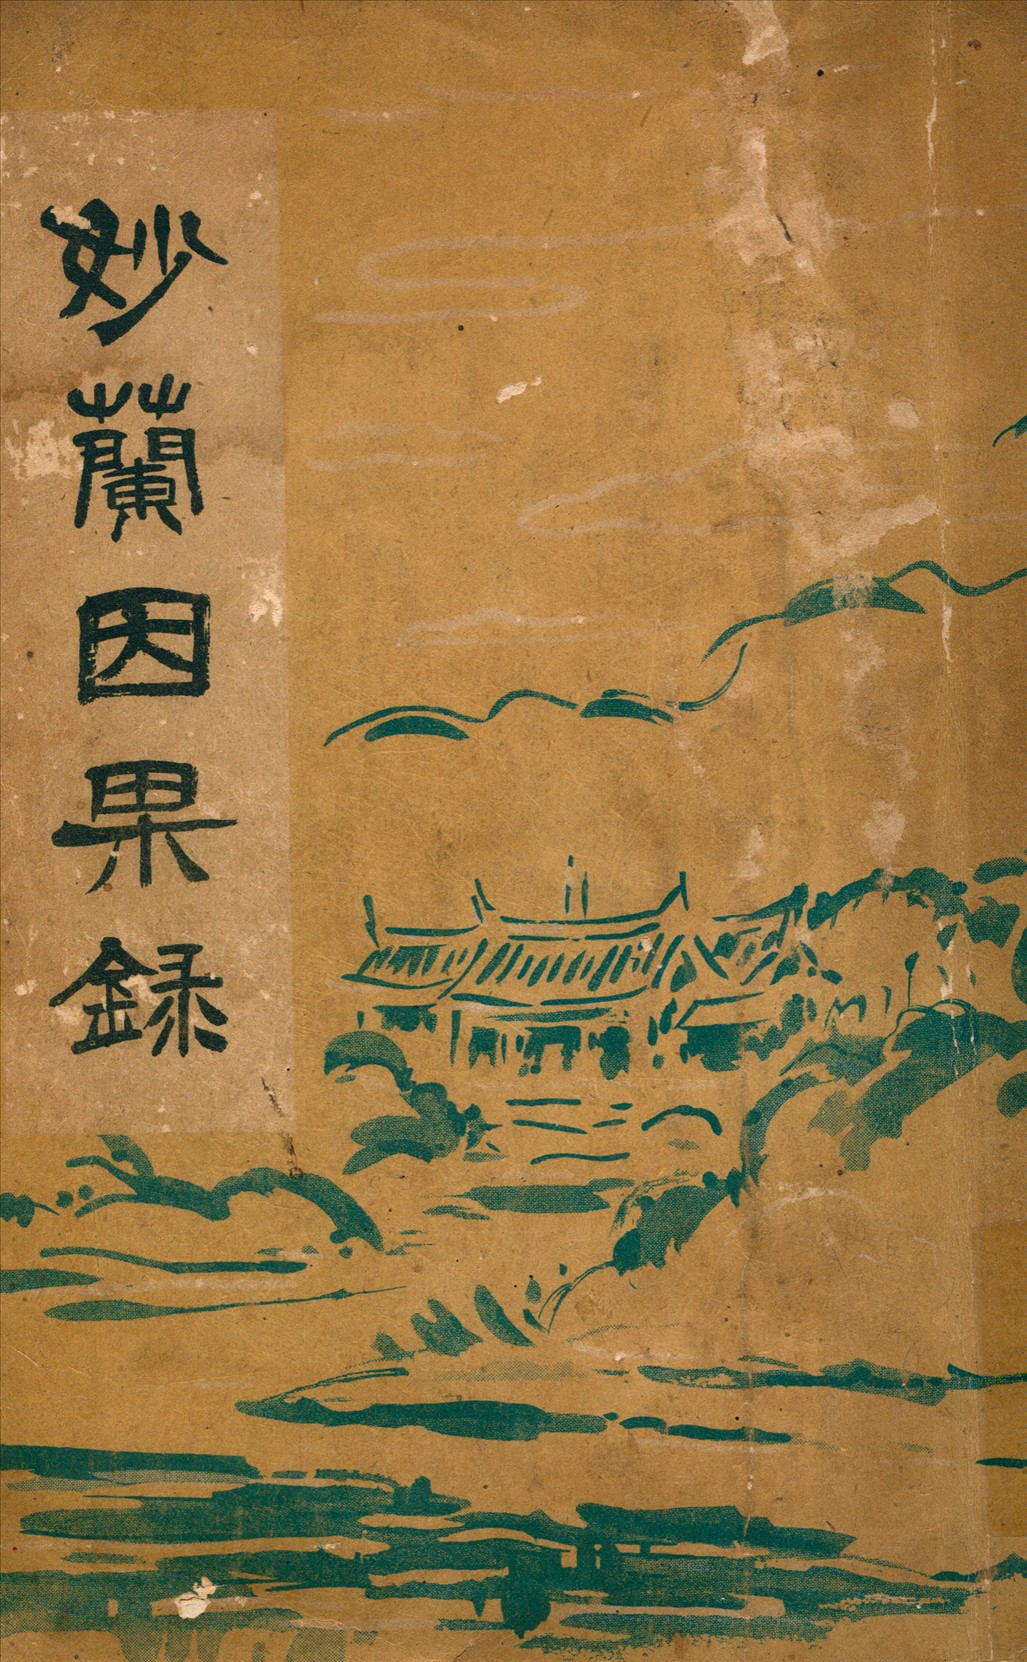 妙蘭因果錄